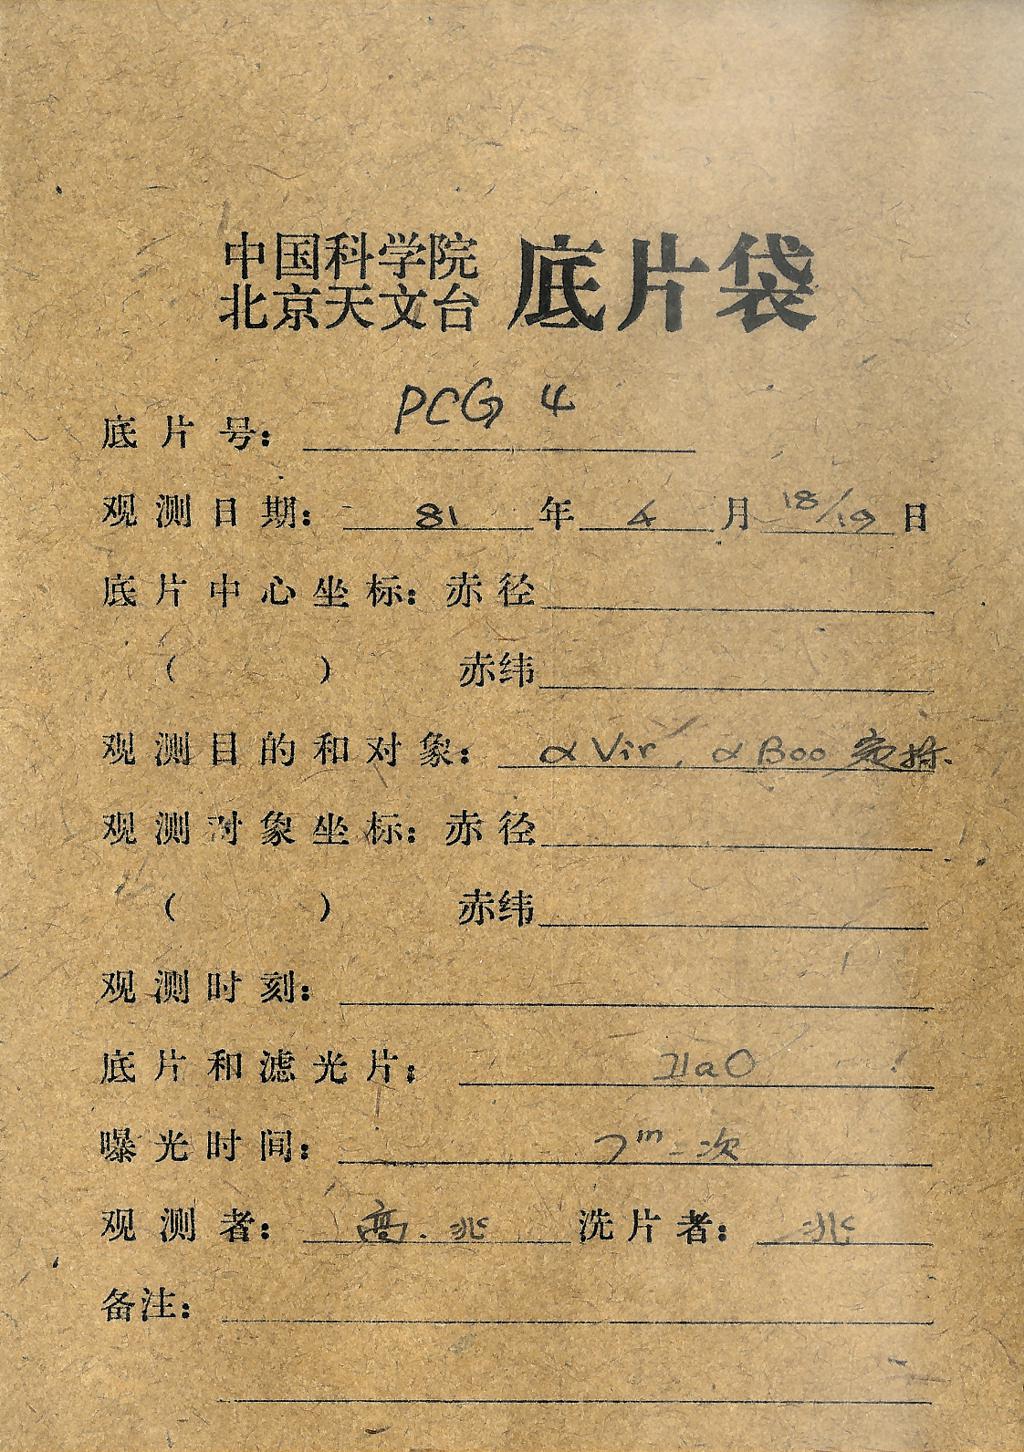 中国科学院
北京天文台 底片袋
底片号： PCG 4
观测日期： 81 年 4 月 18/19 日
底片中心坐标：赤径
（ ） 赤纬
观测目的和对象： α Vir， α Boo
观测对象坐标：赤径
（ ） 赤纬
观测时刻：
底片和滤光片： IIaO
曝光时间： 7m 二次
观测者： 高．兆 洗片者： 兆
备注：